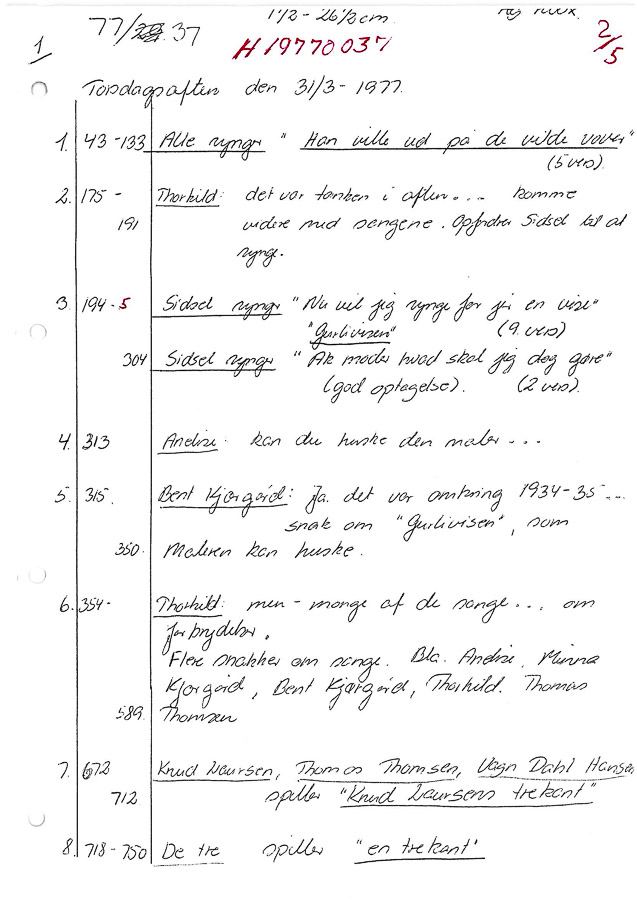 1 77/ 37 1 1/2 - 26 1/2 cm.
H 19770037 2/5
Torsdagsaften den 31/3 - 1977.
1. 43 - 133 Alle synger "Han ville ud på de vilde vover"
(5 vers).
2. 175 - Thorkild: det var tanken i aften.... komme
191 videre med sangene. Opfordrer Sidsel til at
synge.
3. 194 - 5 Sidsel synger "Nu vil jeg synge for jer en vise"
"Gurlivisen" (9 vers)
304 Sidsel synger "Ak moder hvad skal jeg dog gøre"
(god optagelse). (2 vers).
4. 313 Andise: kan du huske den maler ...
5. 315. Bent Kjærgård: Ja. det var omkring 1934-35 ....
snak om "Gurlivisen", som
350. Maleren kan huske.
6. 354 - Thorkild: men - mange af de sange... om
forbrydelser.
Flere snakker om sange. Bla. Andise, Minna
Kjærgård, Bent Kjærgård, Thorkild. Thomas
589. Thomsen
7. 672 Knud Laursen, Thomas Thomsen, Vagn Dahl Hansen
712 spiller "Knud Laursens trekant"
8. 718 - 750 De tre spiller "en trekant"